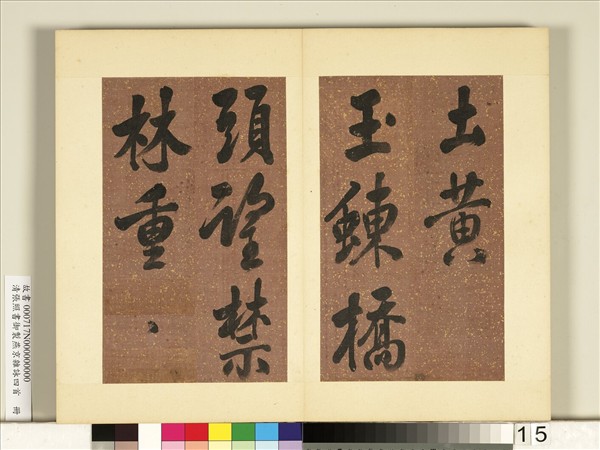 土黄
玉鍊橋
頭望禁
林重〻
故書000717N000000000
清張照書御製燕京雜詠四首 冊
15